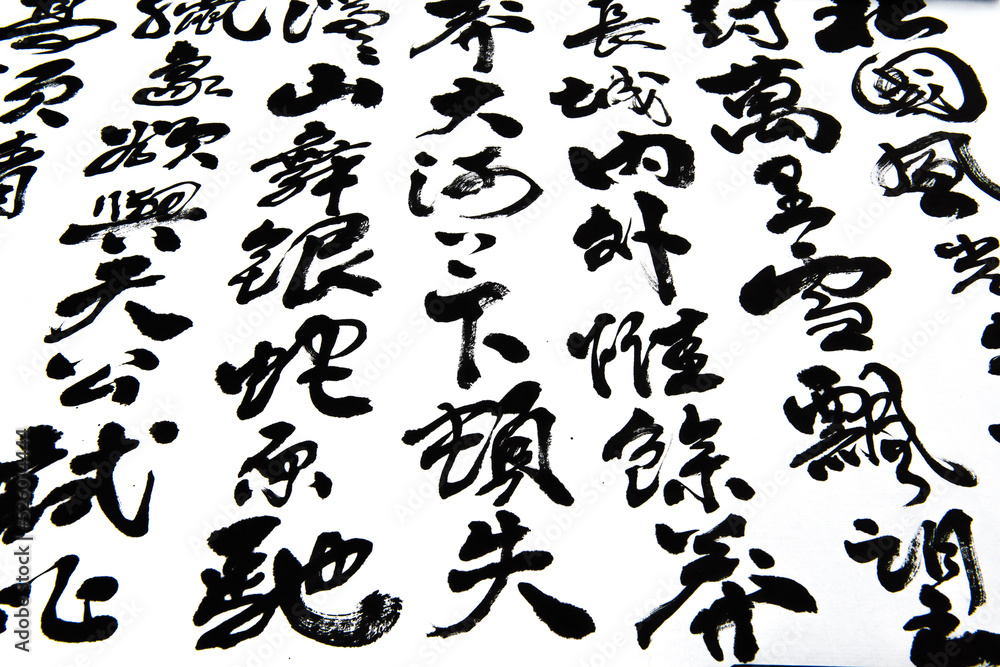 北國風光
封萬里雪飄望
長城内外惟餘莽
莽大河上下頓失
滔山舞銀蛇原馳
蠟象欲與天公試比
高須晴
Adobe Stock | #526014444